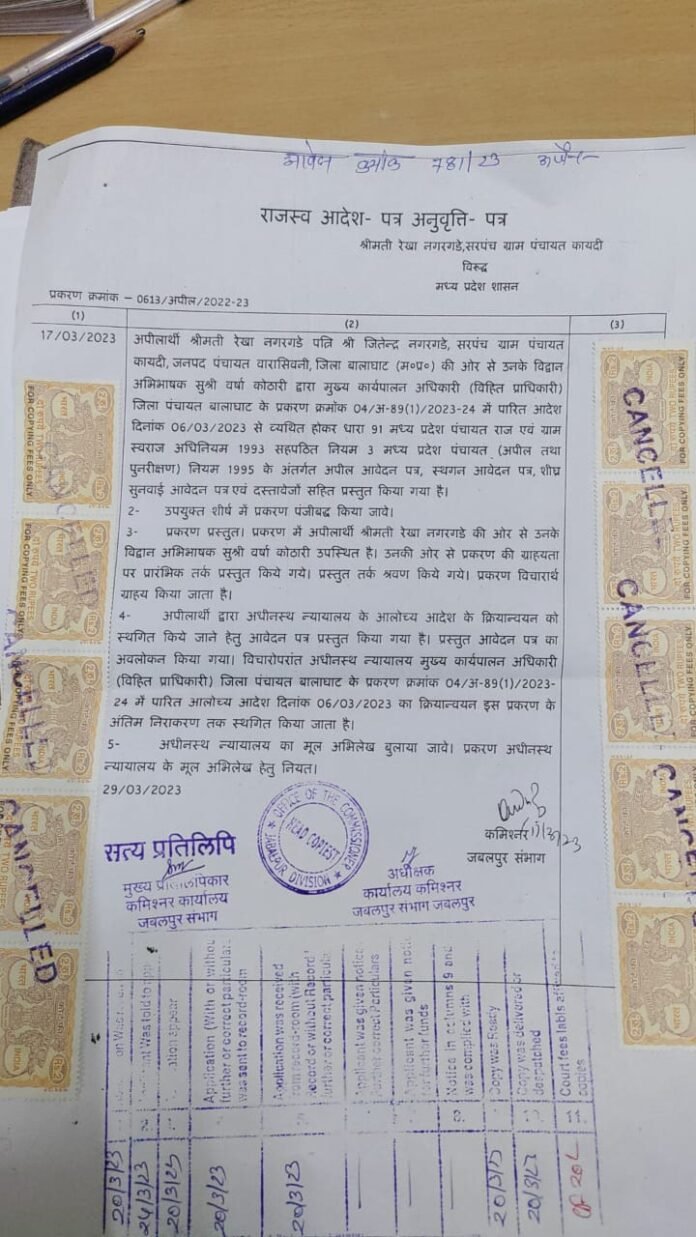 आवेदन क्रमांक 781/23 अर्जेन्ट
राजस्व आदेश- पत्र अनुवृत्ति- पत्र
श्रीमती रेखा नगरगडे,सरपंच ग्राम पंचायत कायदी
विरूद्ध
मध्य प्रदेश शासन
प्रकरण क्रमांक – 0613/अपील/2022-23
(1) (2) (3)
17/03/2023 अपीलार्थी श्रीमती रेखा नगरगडे पत्नि श्री जितेन्द्र नगरगडे, सरपंच ग्राम पंचायत
कायदी, जनपद पंचायत वारासिवनी, जिला बालाघाट (म०प्र०) की ओर से उनके विद्वान
अभिभाषक सुश्री वर्षा कोठारी द्वारा मुख्य कार्यपालन अधिकारी (विहित प्राधिकारी)
जिला पंचायत बालाघाट के प्रकरण क्रमांक 04/अ-89(1)/2023-24 में पारित आदेश
दिनांक 06/03/2023 से व्यथित होकर धारा 91 मध्य प्रदेश पंचायत राज एवं ग्राम
स्वराज अधिनियम 1993 सहपठित नियम 3 मध्य प्रदेश पंचायत (अपील तथा
पुनरीक्षण) नियम 1995 के अंतर्गत अपील आवेदन पत्र, स्थगन आवेदन पत्र, शीघ्र
सुनवाई आवेदन पत्र एवं दस्तावेजों सहित प्रस्तुत किया गया है।
2- उपयुक्त शीर्ष में प्रकरण पंजीबद्ध किया जावे।
3- प्रकरण प्रस्तुत। प्रकरण में अपीलार्थी श्रीमती रेखा नगरगडे की ओर से उनके
विद्वान अभिभाषक सुश्री वर्षा कोठारी उपस्थित है। उनकी ओर से प्रकरण की ग्राहयता
पर प्रारंभिक तर्क प्रस्तुत किये गये। प्रस्तुत तर्क श्रवण किये गये। प्रकरण विचारार्थ
ग्राहय किया जाता है।
4- अपीलार्थी द्वारा अधीनस्थ न्यायालय के आलोच्य आदेश के क्रियान्वयन को
स्थगित किये जाने हेतु आवेदन पत्र प्रस्तुत किया गया है। प्रस्तुत आवेदन पत्र का
अवलोकन किया गया। विचारोपरांत अधीनस्थ न्यायालय मुख्य कार्यपालन अधिकारी
(विहित प्राधिकारी) जिला पंचायत बालाघाट के प्रकरण क्रमांक 04/अ-89(1)/2023-
24 में पारित आलोच्य आदेश दिनांक 06/03/2023 का क्रियान्वयन इस प्रकरण के
अंतिम निराकरण तक स्थगित किया जाता है।
5- अधीनस्थ न्यायालय का मूल अभिलेख बुलाया जावे। प्रकरण अधीनस्थ
न्यायालय के मूल अभिलेख हेतु नियत।
29/03/2023
OFFICE OF THE COMMISSIONER
HEAD COPIEST
JABALPUR DIVISION
कमिश्नर
जबलपुर संभाग
सत्य प्रतिलिपि
मुख्य प्रतिलिपिकार
कमिश्नर कार्यालय
जबलपुर संभाग
अधीक्षक
कार्यालय कमिश्नर
जबलपुर संभाग जबलपुर
FOR COPYING FEES ONLY
भारत
दो रूपये TWO RUPEES
INDIA
CANCELLED
CANCELLED
CANCELLED
CANCELLED
Application (With or without
further or correct particulars
was sent to record-room
Application was received
from record-room (with
Record or without Record)
further or correct particular
Applicant was given notice
further correct Particulars
Applicant was given notice
for further funds
Notice in columns 9 and
was complied with
Copy was Ready
Copy was delivered or
despatched
Court fees labls affixed to
copies
20/3/23
24/3/23
20/3/23
20/3/23
20/3/23
20/3/23
20/3/23